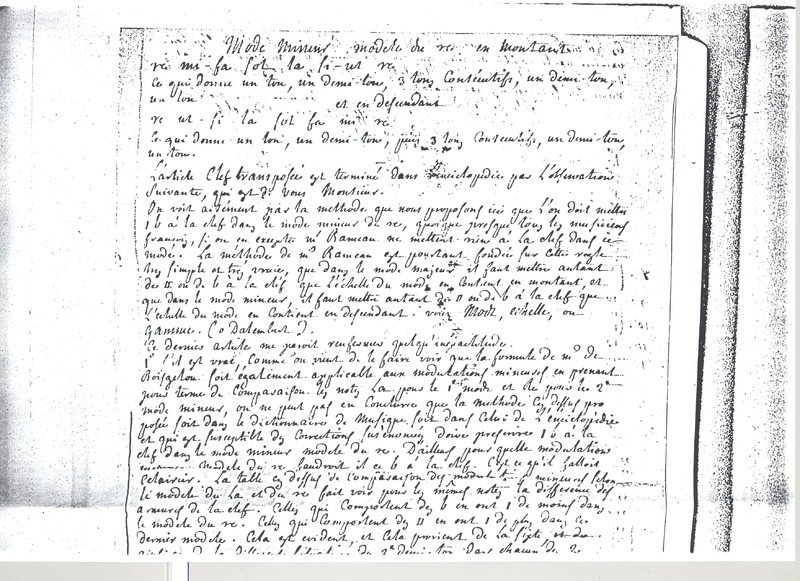 Mode Mineur modele du re en montant
re mi-fa sol la si-ut re
ce qui donne un ton, un demi-ton, 3 tons Consecutifs, un demi-ton,
un ton et en descendant
re ut - si la sol fa mi re
ce qui donne un ton, un demi-ton, puis 3 tons Consecutifs, un demi-ton,
un ton.
L'article Clef transposée est terminé dans L'enciclopedie par L'observation
Suivante, qui est di vous Monsieur.
On voit aisément par la methode que nous proposons ici que L'on doit mettre
1 b à la clef dans le mode mineur de re, quoique presque tous les musiciens
françois, si on en excepte mr Rameau ne mettent rien à la clef dans ce
mode. La methode de mr Rameau est pourtant fondée sur cette regle
tres simple et tres vraie, que dans le mode majeur il faut mettre autant
de # ou de b à la clef que L'échelle du mode en Contient en montant, et
que dans le mode mineur, il faut mettre autant de # ou de b à la clef que
L'echelle du mode en Contient en descendant. voiez Mode, echelle, ou
gamme. (o Dalembert).
Ce dernier article me paroit renfermer quelqu'inexactitude.
1° s'il est vrai, Comme on vient de le faire voir que la formule de mr de
Boisgelou soit également applicable aux modulations mineures en prenant
pour terme de Comparaison les notes La pour le 1er mode et Re pour le 2e
mode mineur, on ne peut pas en Conclure que la methode Cy dessus pro
posée soit dans le dictionnaire de Musique, soit dans Celui de L'enciclopédie
et qui est susceptible des Corrections susenoncées doive prescrire 1 b à la
clef dans le mode mineur modele du re. D'ailleurs pour quelle modulation
modele du re faudroit il ce b à la clef. C'est ce qu'il falloit
eclaircir. La table cy dessus de Comparaison des modulatons mineures selon
le modele du La et du re fait voir pour les mêmes notes la difference des
armures de la clef. Celles qui Comportent des b en ont 1 de moins dans
le modele du re. Celles qui Comportent des # en ont 1 de plus dans ce
dernier modele. Cela est evident, et Cela provient de la sixte,
de la differente situation du 2e demi-ton dans chacun de